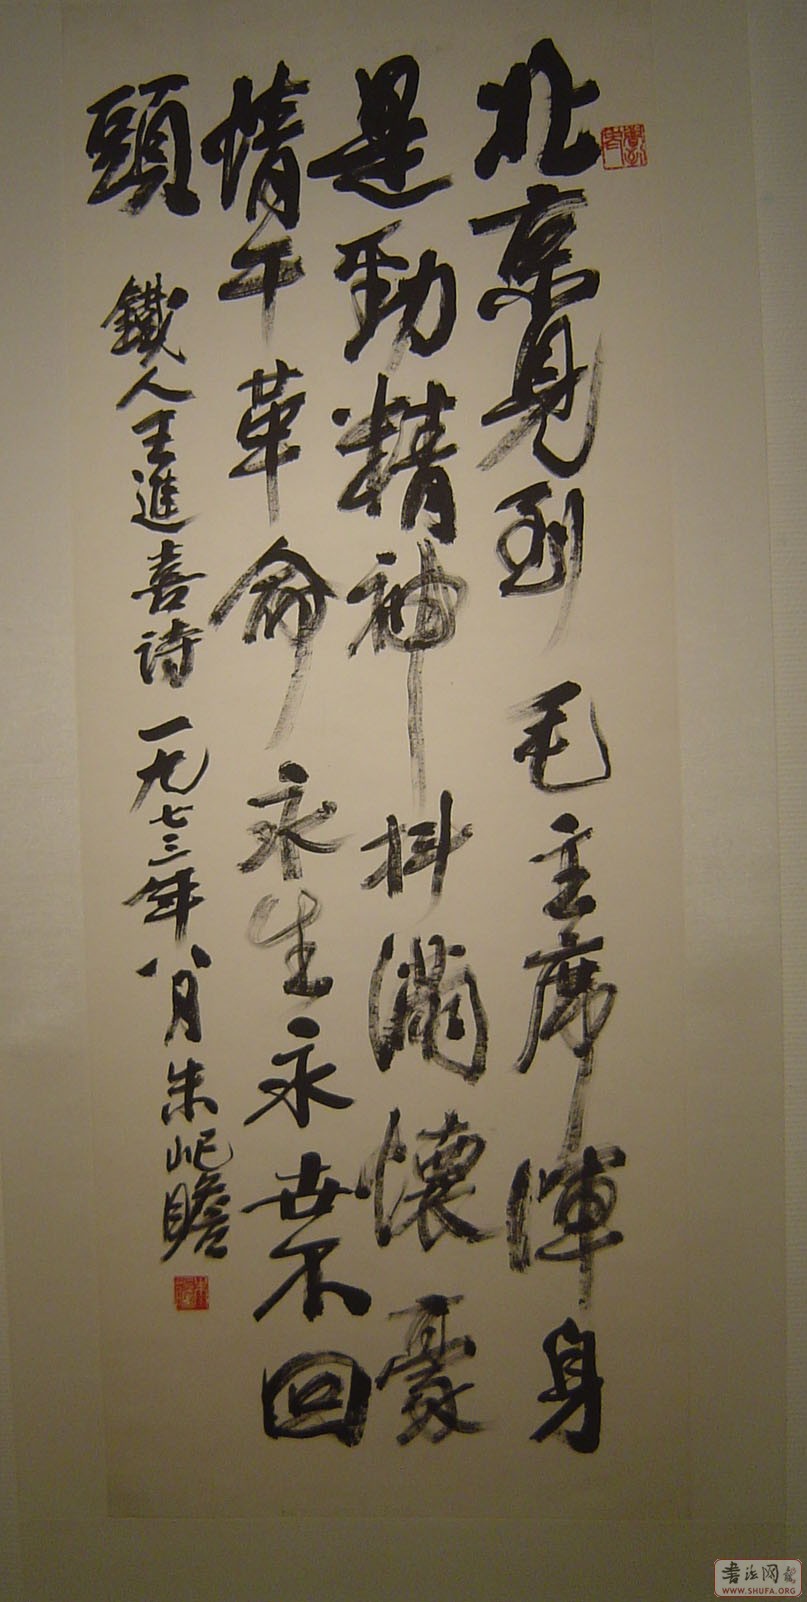 北京見到毛主席渾身
是勁精神抖滿懷豪
情干革命永生永世不回
頭
鐵人王進喜诗一九七三年八月朱屺瞻
書法网
WWW.SHUFA.ORG